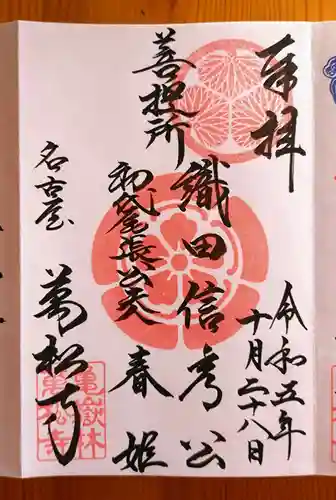 奉拝
令和五年
十月二十八日
織田信秀公
善提所
初代尾張公夫人
春姫
名古屋
萬松寺
亀嶽林
萬松寺